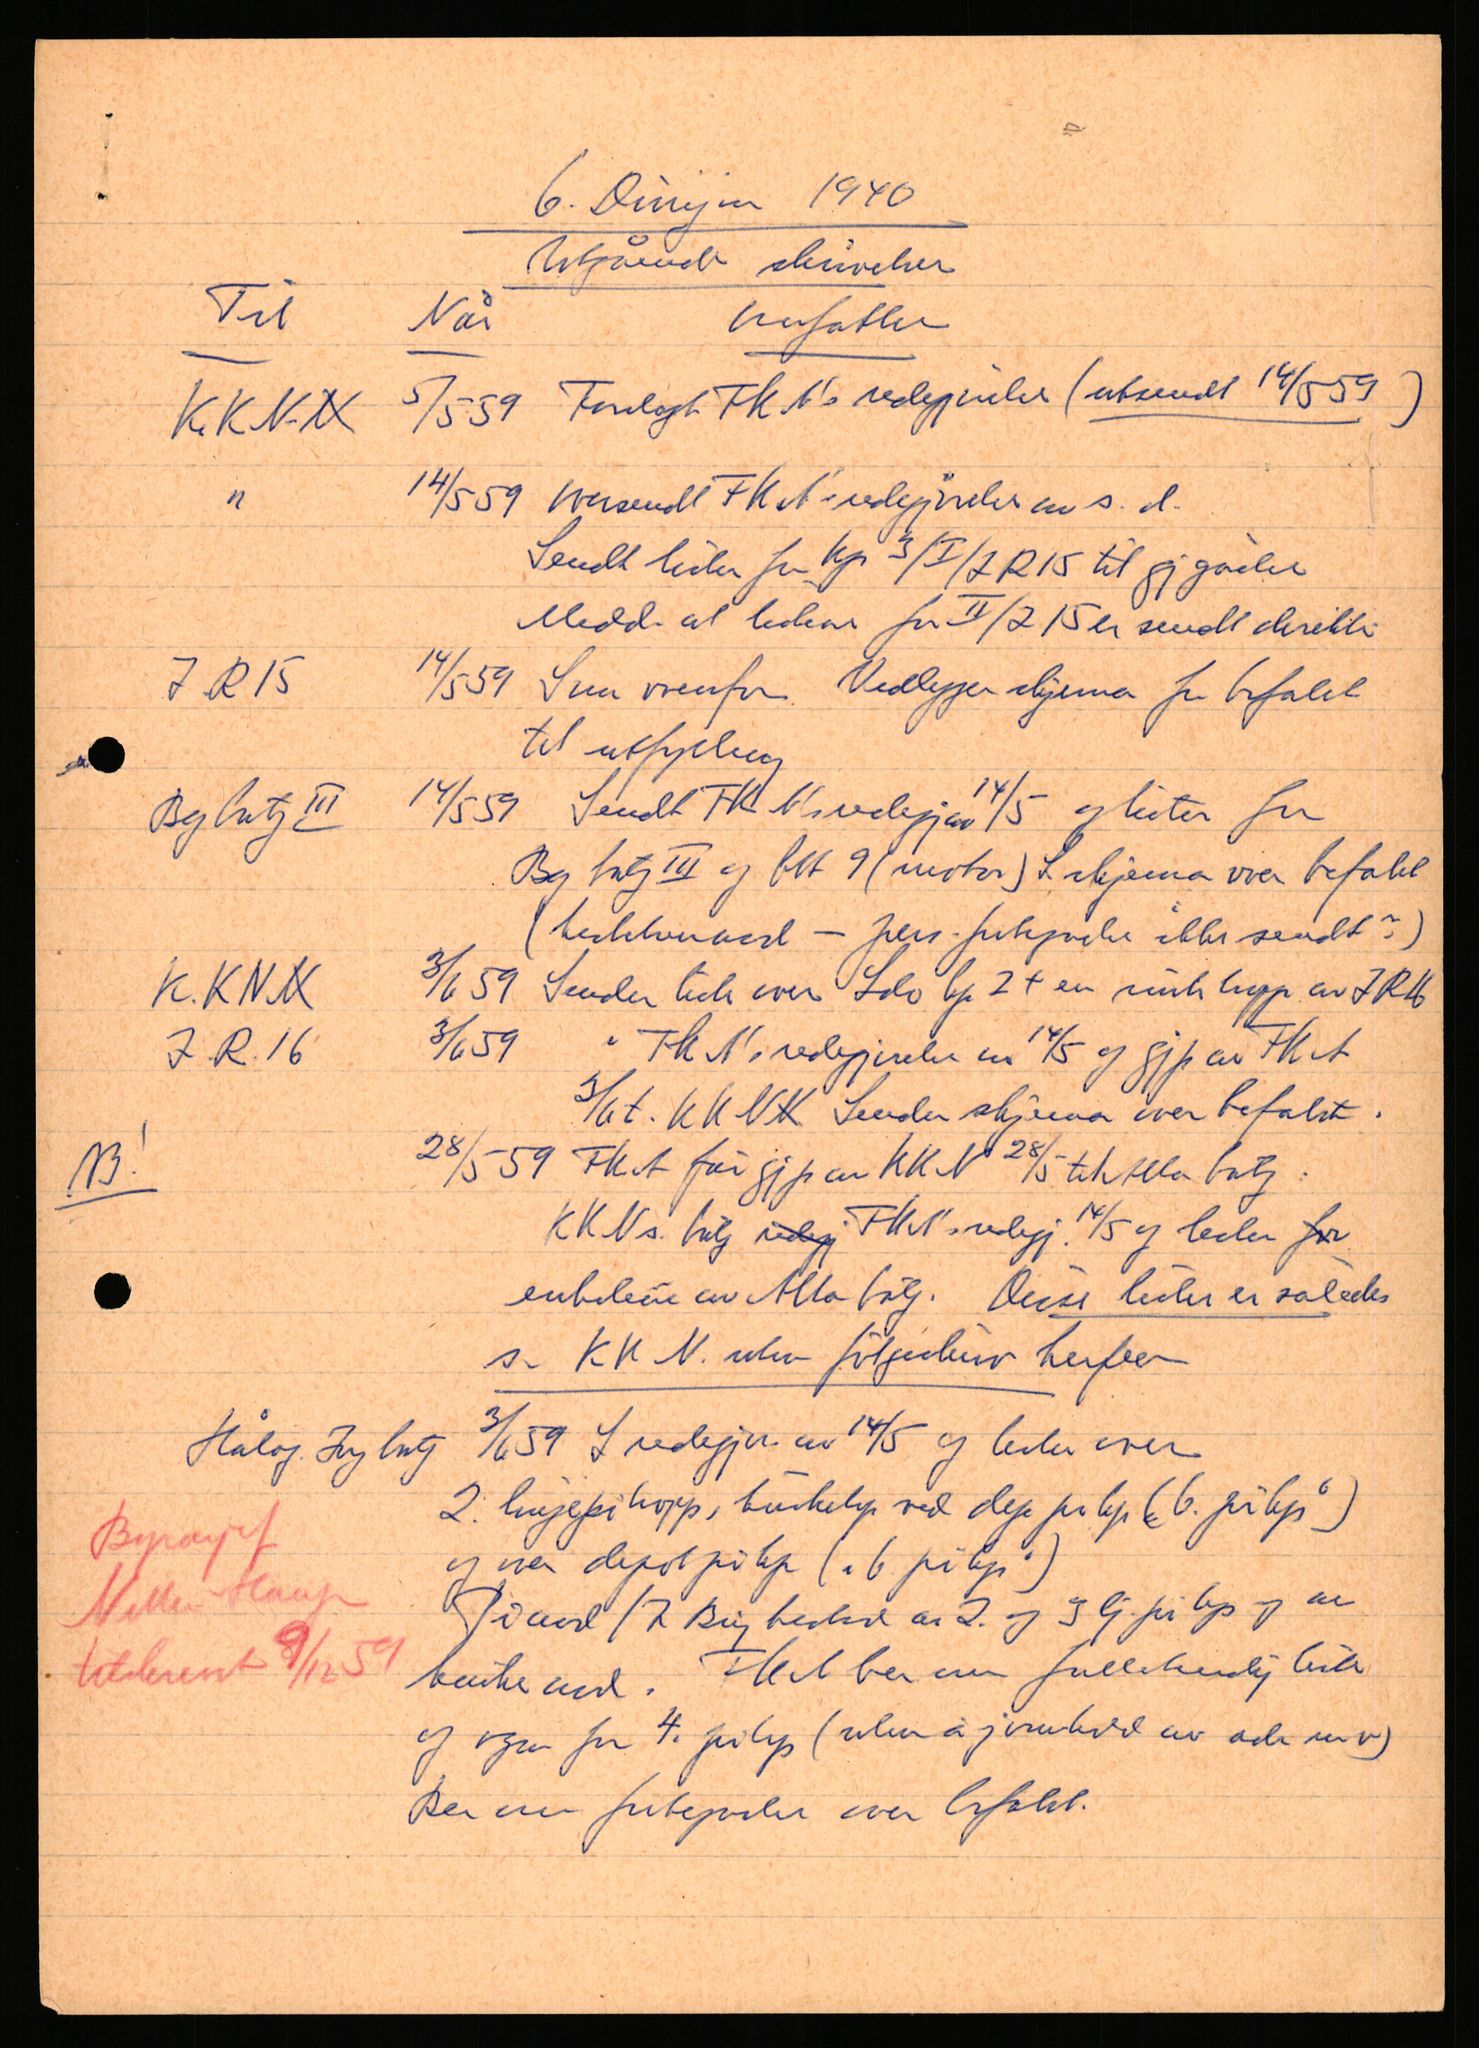 6. Divisjon 1940
Utgående skrivelser
Til Når Omfatter
K.K.N.N 5/5-59 Forelagt FKN's redegjørelse (utsendt 14/5 59)
" 14/5 59 Oversendt FKN's redegjørelse av s.d.
Sendt lister for kp 3/I/IR15 til gj.gåelse
Medd. at listene for II/I 15 er sendt direkte
I R 15 14/5 59 Som ovenfor Vedlegger skjema for befalet
til utfylling
Bg batj III 14/5 59 Sendt FKN's redegj av 14/5 og lister for
Bg batj III og btt 9 (motor) S skjema over befalet
( – pers. ikke sendt?)
K.KNN 3/6 59 Sender liste over Ldv kp 2 + en av IR16
I.R. 16 3/6 59 " FKN's redegjørelse av 14/5 og gjp av FKN
3/6 t. KKNN Sender skjema over befalet.
NB! 28/5-59 FKN får gjp av KKN 28/5 til Alta batj.
KKN s. batj redegj FKN's redegj. 14/5 og lister for
enhetene av Alta batj. Disse lister er således
s. KKN. uten følgeskriv herfra
Hålog. Ing batj 3/6 59 S redegjør. av 14/5 og lister over
2. linjepi kopp, ved dep pi kp ("6. pi kp")
og over depot pi kp ("6 pi kp")
/I Brig av 2. og 3 lj. pi kp og av
FKN ber om fullstendig liste
og også for 4. pi kp (uten av o.s.v)
Ber om over befalet.
Byråsjef
8/12 59